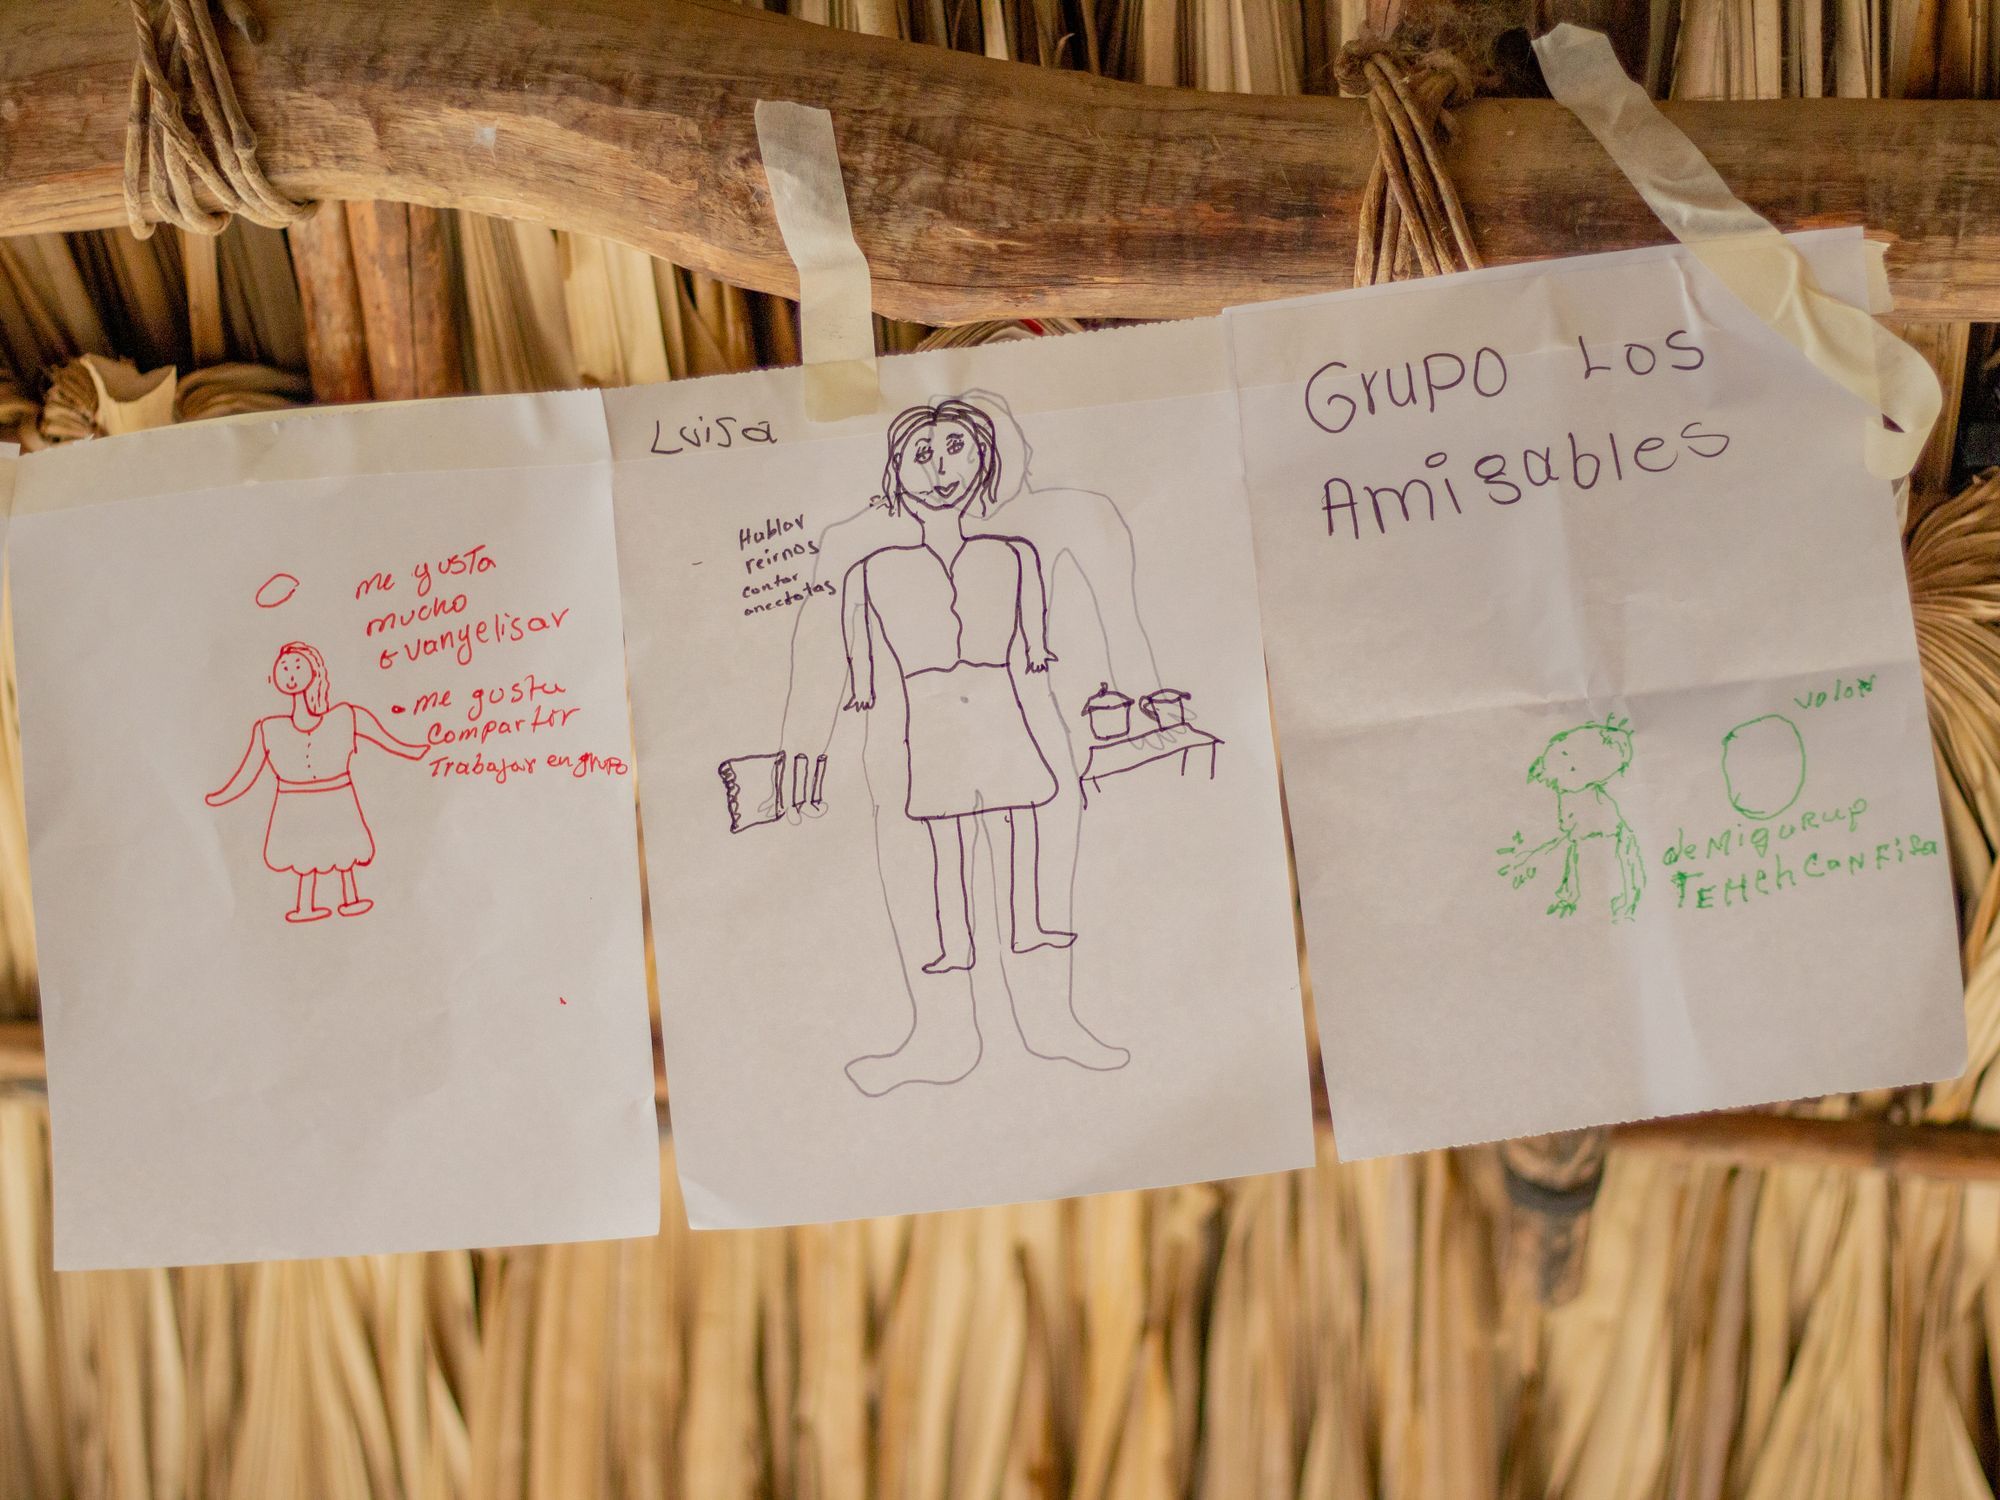 me gusta
mucho
evangelisar
me gusta
compartir
Trabajar en grupo
Luisa
Hablar
reirnos
contar
anecdotas
Grupo Los
Amigables
valor
de Migurup